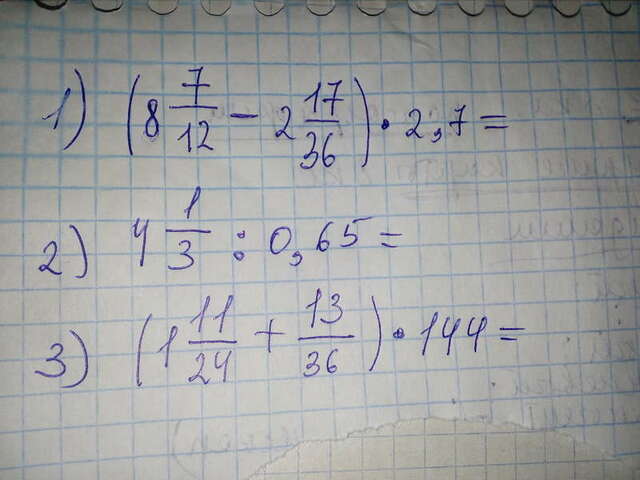 1) (8 7/12 - 2 17/36) · 2,7 =
2) 4 1/3 : 0,65 =
3) (1 11/24 + 13/36) · 144 =